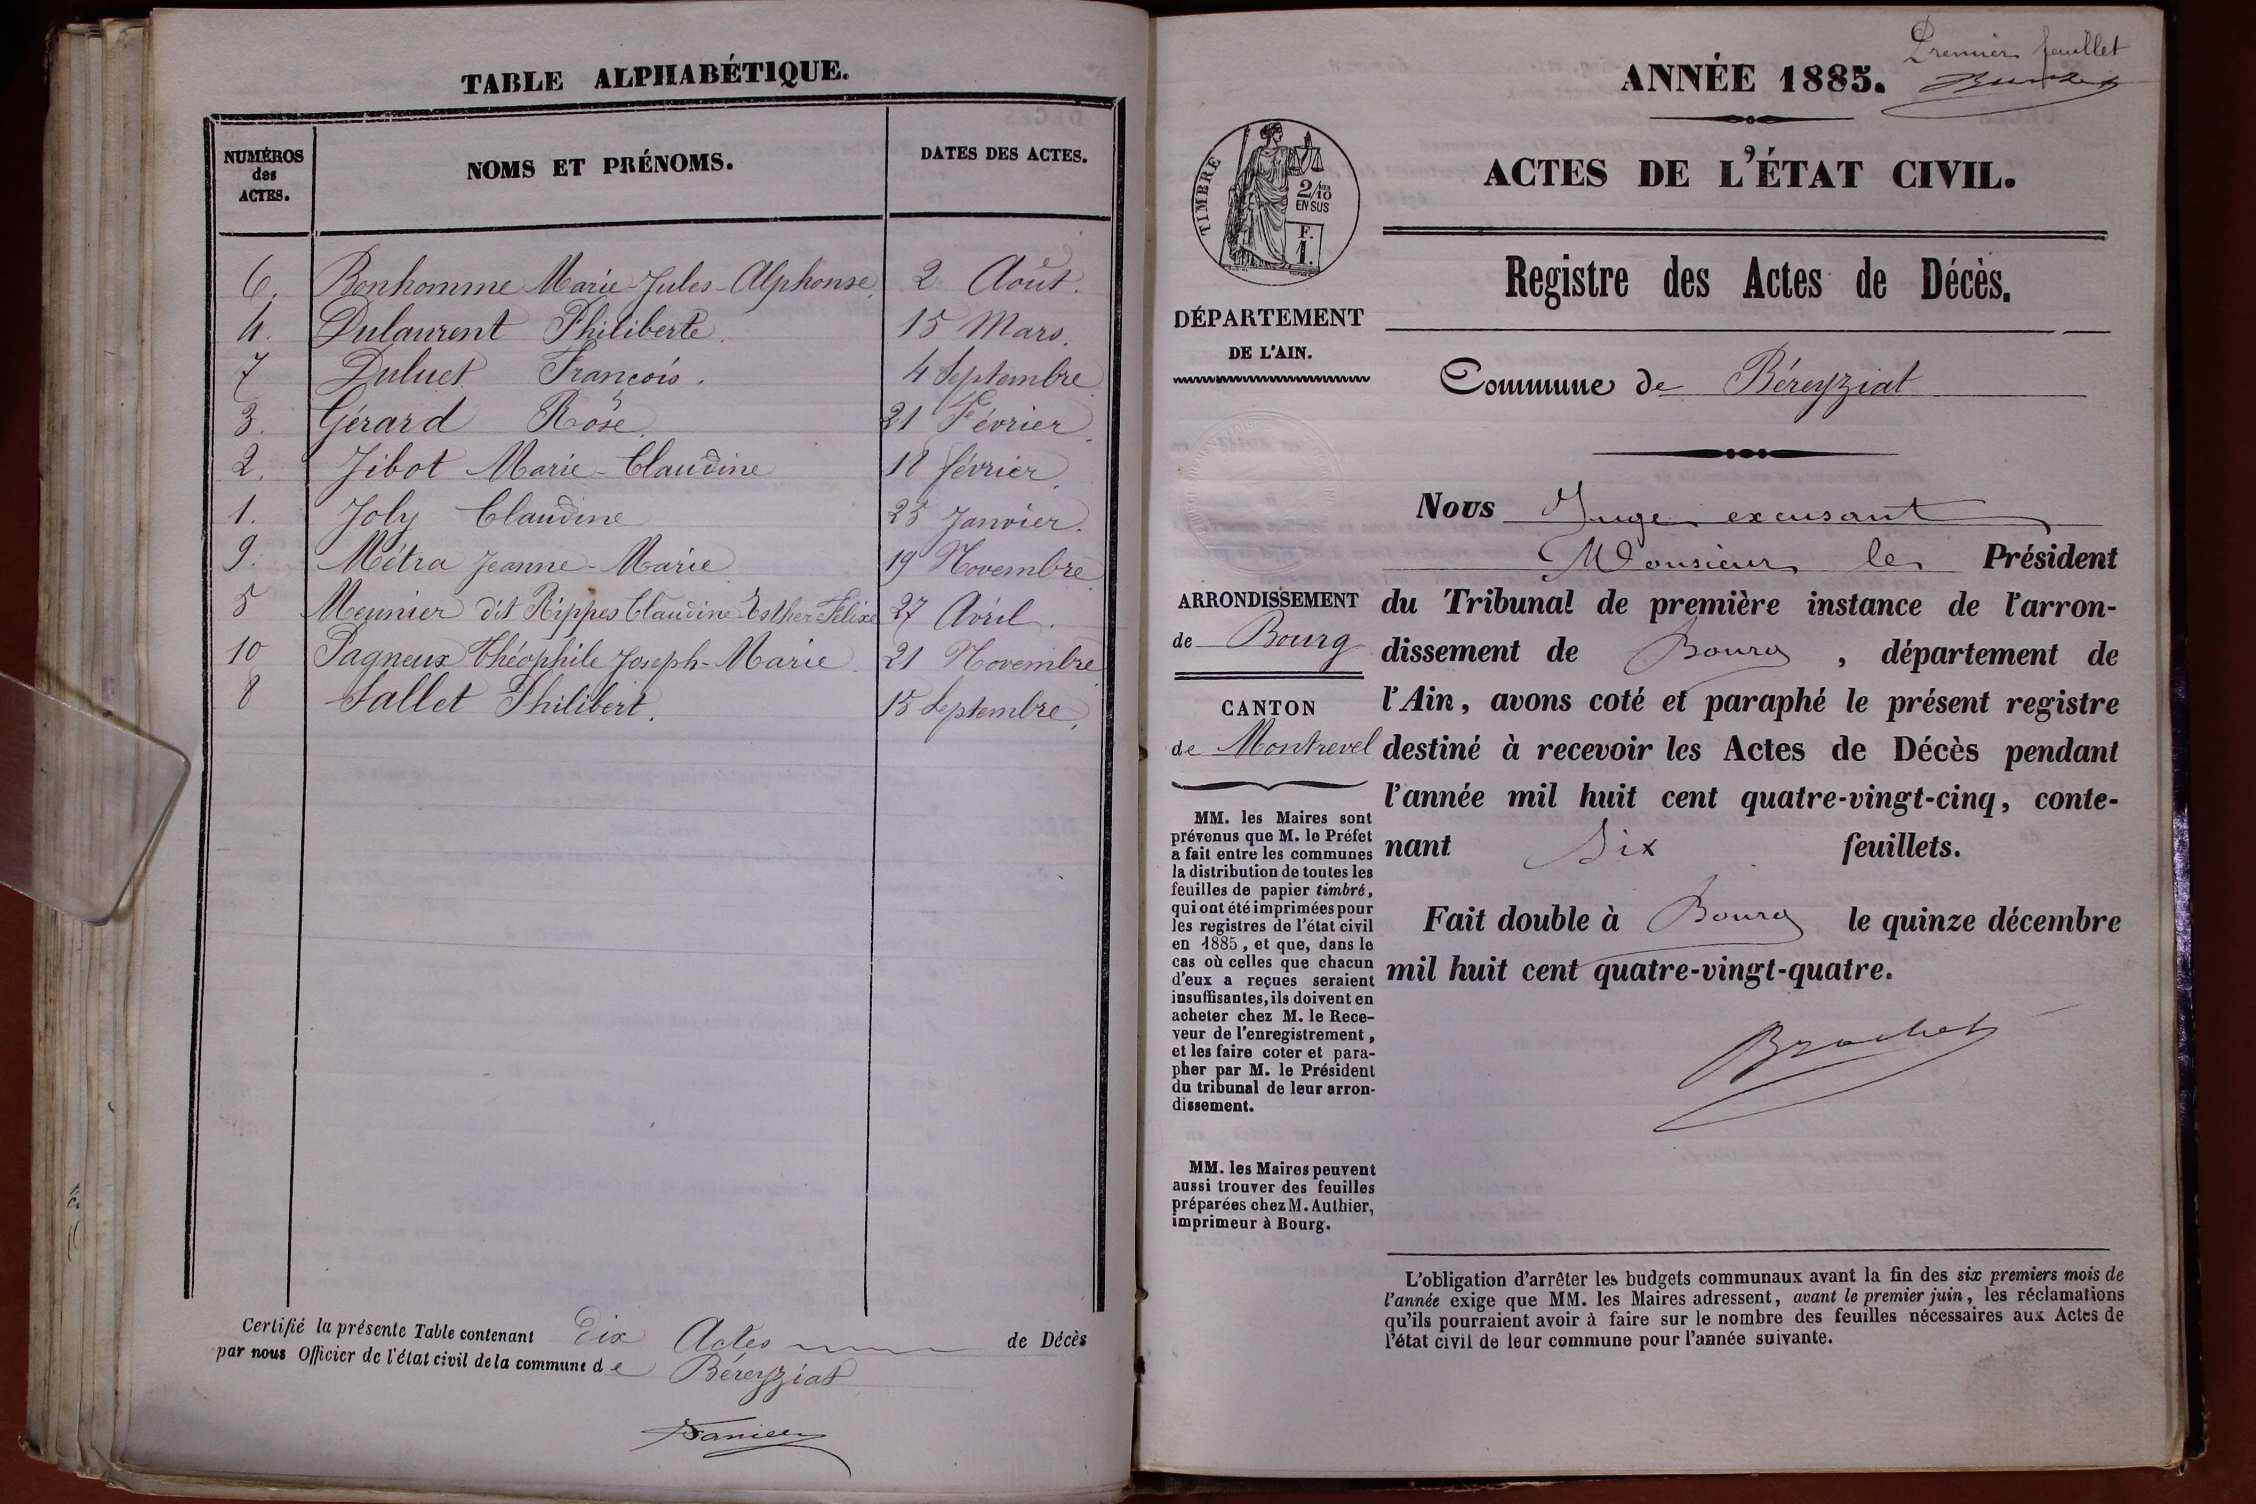 TABLE ALPHABÉTIQUE.
NUMÉROS des ACTES.
NOMS ET PRÉNOMS.
DATES DES ACTES.
6. Bonhomme Marie-Jules-Alphonse. 2 Août.
4. Dulaurent Philiberte. 15 Mars.
7 Duluet François. 4 Septembre
3. Gérard Rose. 21 Février.
2. Jibot Marie-Claudine 18 février.
1. Joly Claudine 25 Janvier.
9. Métra Jeanne-Marie 19 Novembre
5 Meunier dit Rippes Claudine Esther Félixe 27 Avril.
10 Pagneux Théophile Joseph-Marie. 21 Novembre
8 Sallet Philibert. 15 Septembre.
Certifié la présente Table contenant Dix Actes de Décès
par nous Officier de l'état civil de la commune de Béreyziat
Premier feuillet
ANNÉE 1885.
ACTES DE L'ÉTAT CIVIL.
TIMBRE
2/10
EN SUS
F.
1.
Registre des Actes de Décès.
DÉPARTEMENT
DE L'AIN.
Commune de Béreyziat
ARRONDISSEMENT
de Bourg
CANTON
de Montrevel
MM. les Maires sont
prévenus que M. le Préfet
a fait entre les communes
la distribution de toutes les
feuilles de papier timbré,
qui ont été imprimées pour
les registres de l'état civil
en 1885, et que, dans le
cas où celles que chacun
d'eux a reçues seraient
insuffisantes, ils doivent en
acheter chez M. le Rece-
veur de l'enregistrement,
et les faire coter et para-
pher par M. le Président
du tribunal de leur arron-
dissement.
MM. les Maires peuvent
aussi trouver des feuilles
préparées chez M. Authier,
imprimeur à Bourg.
Nous Juge excusant
Monsieur le Président
du Tribunal de première instance de l'arron-
dissement de Bourg, département de
l'Ain, avons coté et paraphé le présent registre
destiné à recevoir les Actes de Décès pendant
l'année mil huit cent quatre-vingt-cinq, conte-
nant Six feuillets.
Fait double à Bourg le quinze décembre
mil huit cent quatre-vingt-quatre.
Brochet
L'obligation d'arrêter les budgets communaux avant la fin des six premiers mois de
l'année exige que MM. les Maires adressent, avant le premier juin, les réclamations
qu'ils pourraient avoir à faire sur le nombre des feuilles nécessaires aux Actes de
l'état civil de leur commune pour l'année suivante.